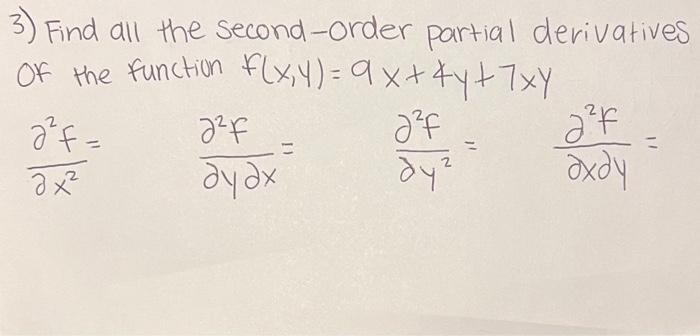 3) Find all the second-order partial derivatives
Of the function f(x,y)=9x+4y+7xy
∂²f/∂x² = ∂²f/∂y∂x = ∂²f/∂y² = ∂²f/∂x∂y =